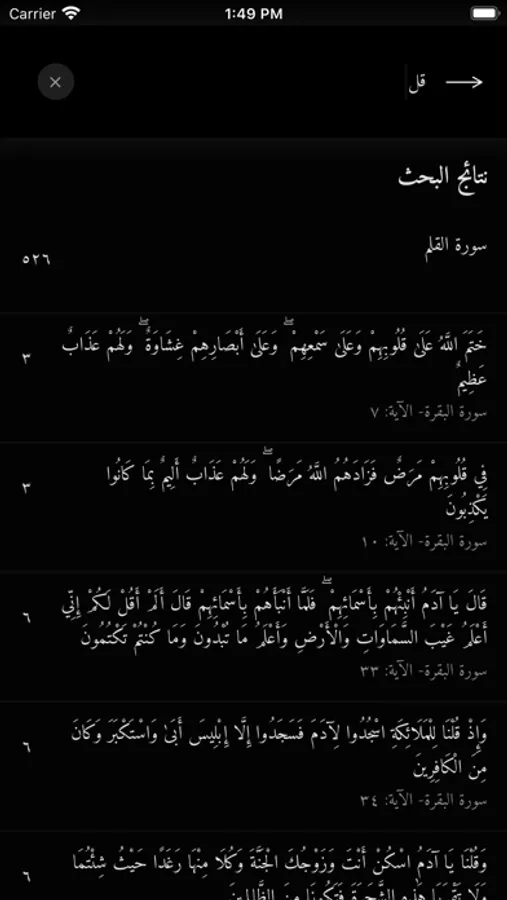 Carrier 1:49 PM
قل
نتائج البحث
سورة القلم
٥٢٦
خَتَمَ اللَّهُ عَلَىٰ قُلُوبِهِمْ وَعَلَىٰ سَمْعِهِمْ ۖ وَعَلَىٰ أَبْصَارِهِمْ غِشَاوَةٌ ۖ وَلَهُمْ عَذَابٌ
عَظِيمٌ
٣
سورة البقرة- الآية: ٧
فِي قُلُوبِهِمْ مَرَضٌ فَزَادَهُمُ اللَّهُ مَرَضًا ۖ وَلَهُمْ عَذَابٌ أَلِيمٌ بِمَا كَانُوا
يَكْذِبُونَ
٣
سورة البقرة- الآية: ١٠
قَالَ يَا آدَمُ أَنْبِئْهُمْ بِأَسْمَائِهِمْ ۖ فَلَمَّا أَنْبَأَهُمْ بِأَسْمَائِهِمْ قَالَ أَلَمْ أَقُلْ لَكُمْ إِنِّي
أَعْلَمُ غَيْبَ السَّمَاوَاتِ وَالْأَرْضِ وَأَعْلَمُ مَا تُبْدُونَ وَمَا كُنْتُمْ تَكْتُمُونَ
٦
سورة البقرة- الآية: ٣٣
وَإِذْ قُلْنَا لِلْمَلَائِكَةِ اسْجُدُوا لِآدَمَ فَسَجَدُوا إِلَّا إِبْلِيسَ أَبَىٰ وَاسْتَكْبَرَ وَكَانَ
مِنَ الْكَافِرِينَ
٦
سورة البقرة- الآية: ٣٤
وَقُلْنَا يَا آدَمُ اسْكُنْ أَنْتَ وَزَوْجُكَ الْجَنَّةَ وَكُلَا مِنْهَا رَغَدًا حَيْثُ شِئْتُمَا
وَلَا تَقْرَبَا هَٰذِهِ الشَّجَرَةَ فَتَكُونَا مِنَ الظَّالِمِينَ
٦